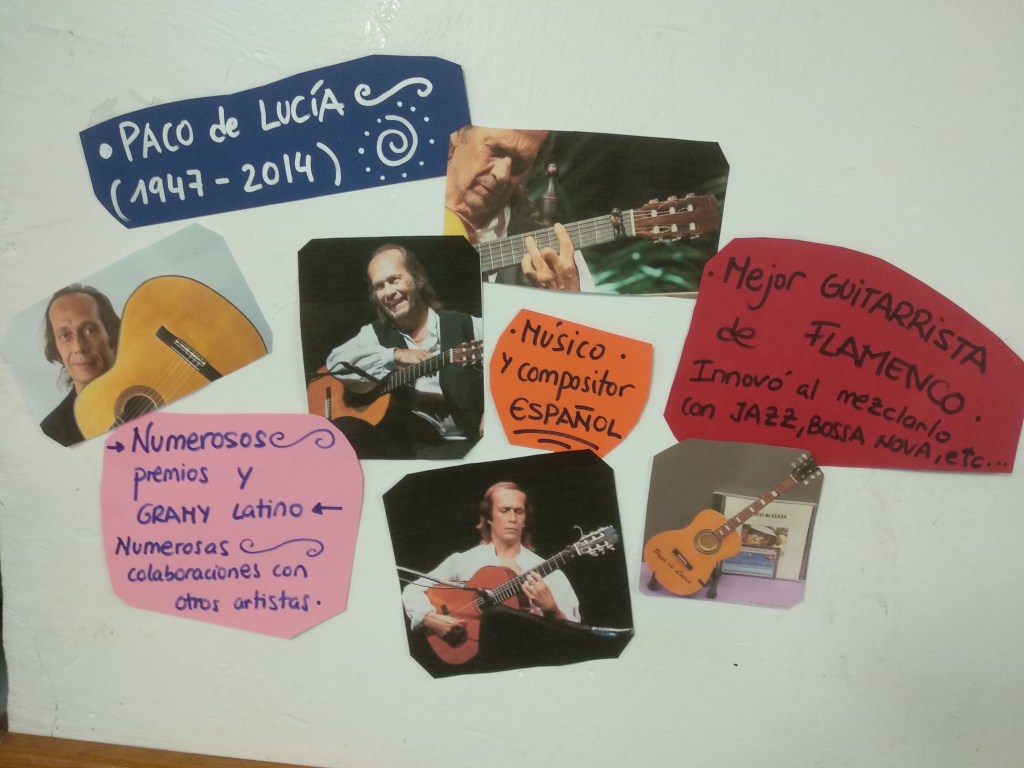 • PACO de LUCÍA
(1947 - 2014)
• Músico •
y compositor
ESPAÑOL
• Mejor GUITARRISTA
de FLAMENCO •
Innovó al mezclarlo
con JAZZ, BOSSA NOVA, etc...
→ Numerosos
premios y
GRAMY Latino ←
Numerosas
colaboraciones con
otros artistas.
Paco de Lucía